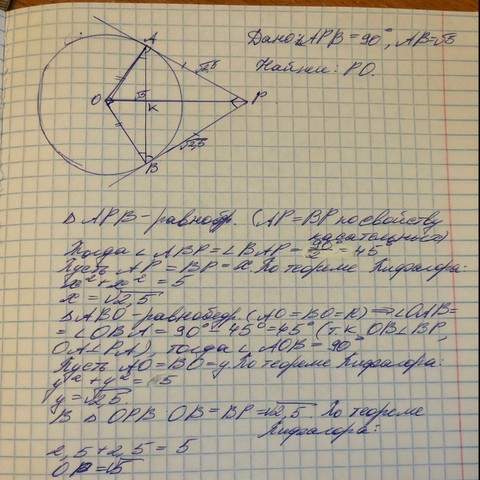 Дано: ∠APB = 90°, AB = √5
Найти: PO.
A
√2,5
O
√5
K
P
√2,5
B
△ APB - равнобр. (AP = BP по свойству
касательных)
Тогда ∠ ABP = ∠BAP = 90/2 = 45
Пусть AP = BP = x. По теореме Пифагора:
x² + x² = 5
x = √2,5
△ ABO - равнобедр. (AO = BO = R) ⇒ ∠OAB =
= ∠OBA = 90° - 45° = 45° (т.к. OB⊥BP,
OA⊥PA), тогда ∠ AOB = 90°
Пусть AO = BO = y По теореме Пифагора:
y² + y² = 5
y = √2,5
В △ OPB OB = BP = √2,5. По теореме
Пифагора:
2,5 + 2,5 = 5
OP = √5